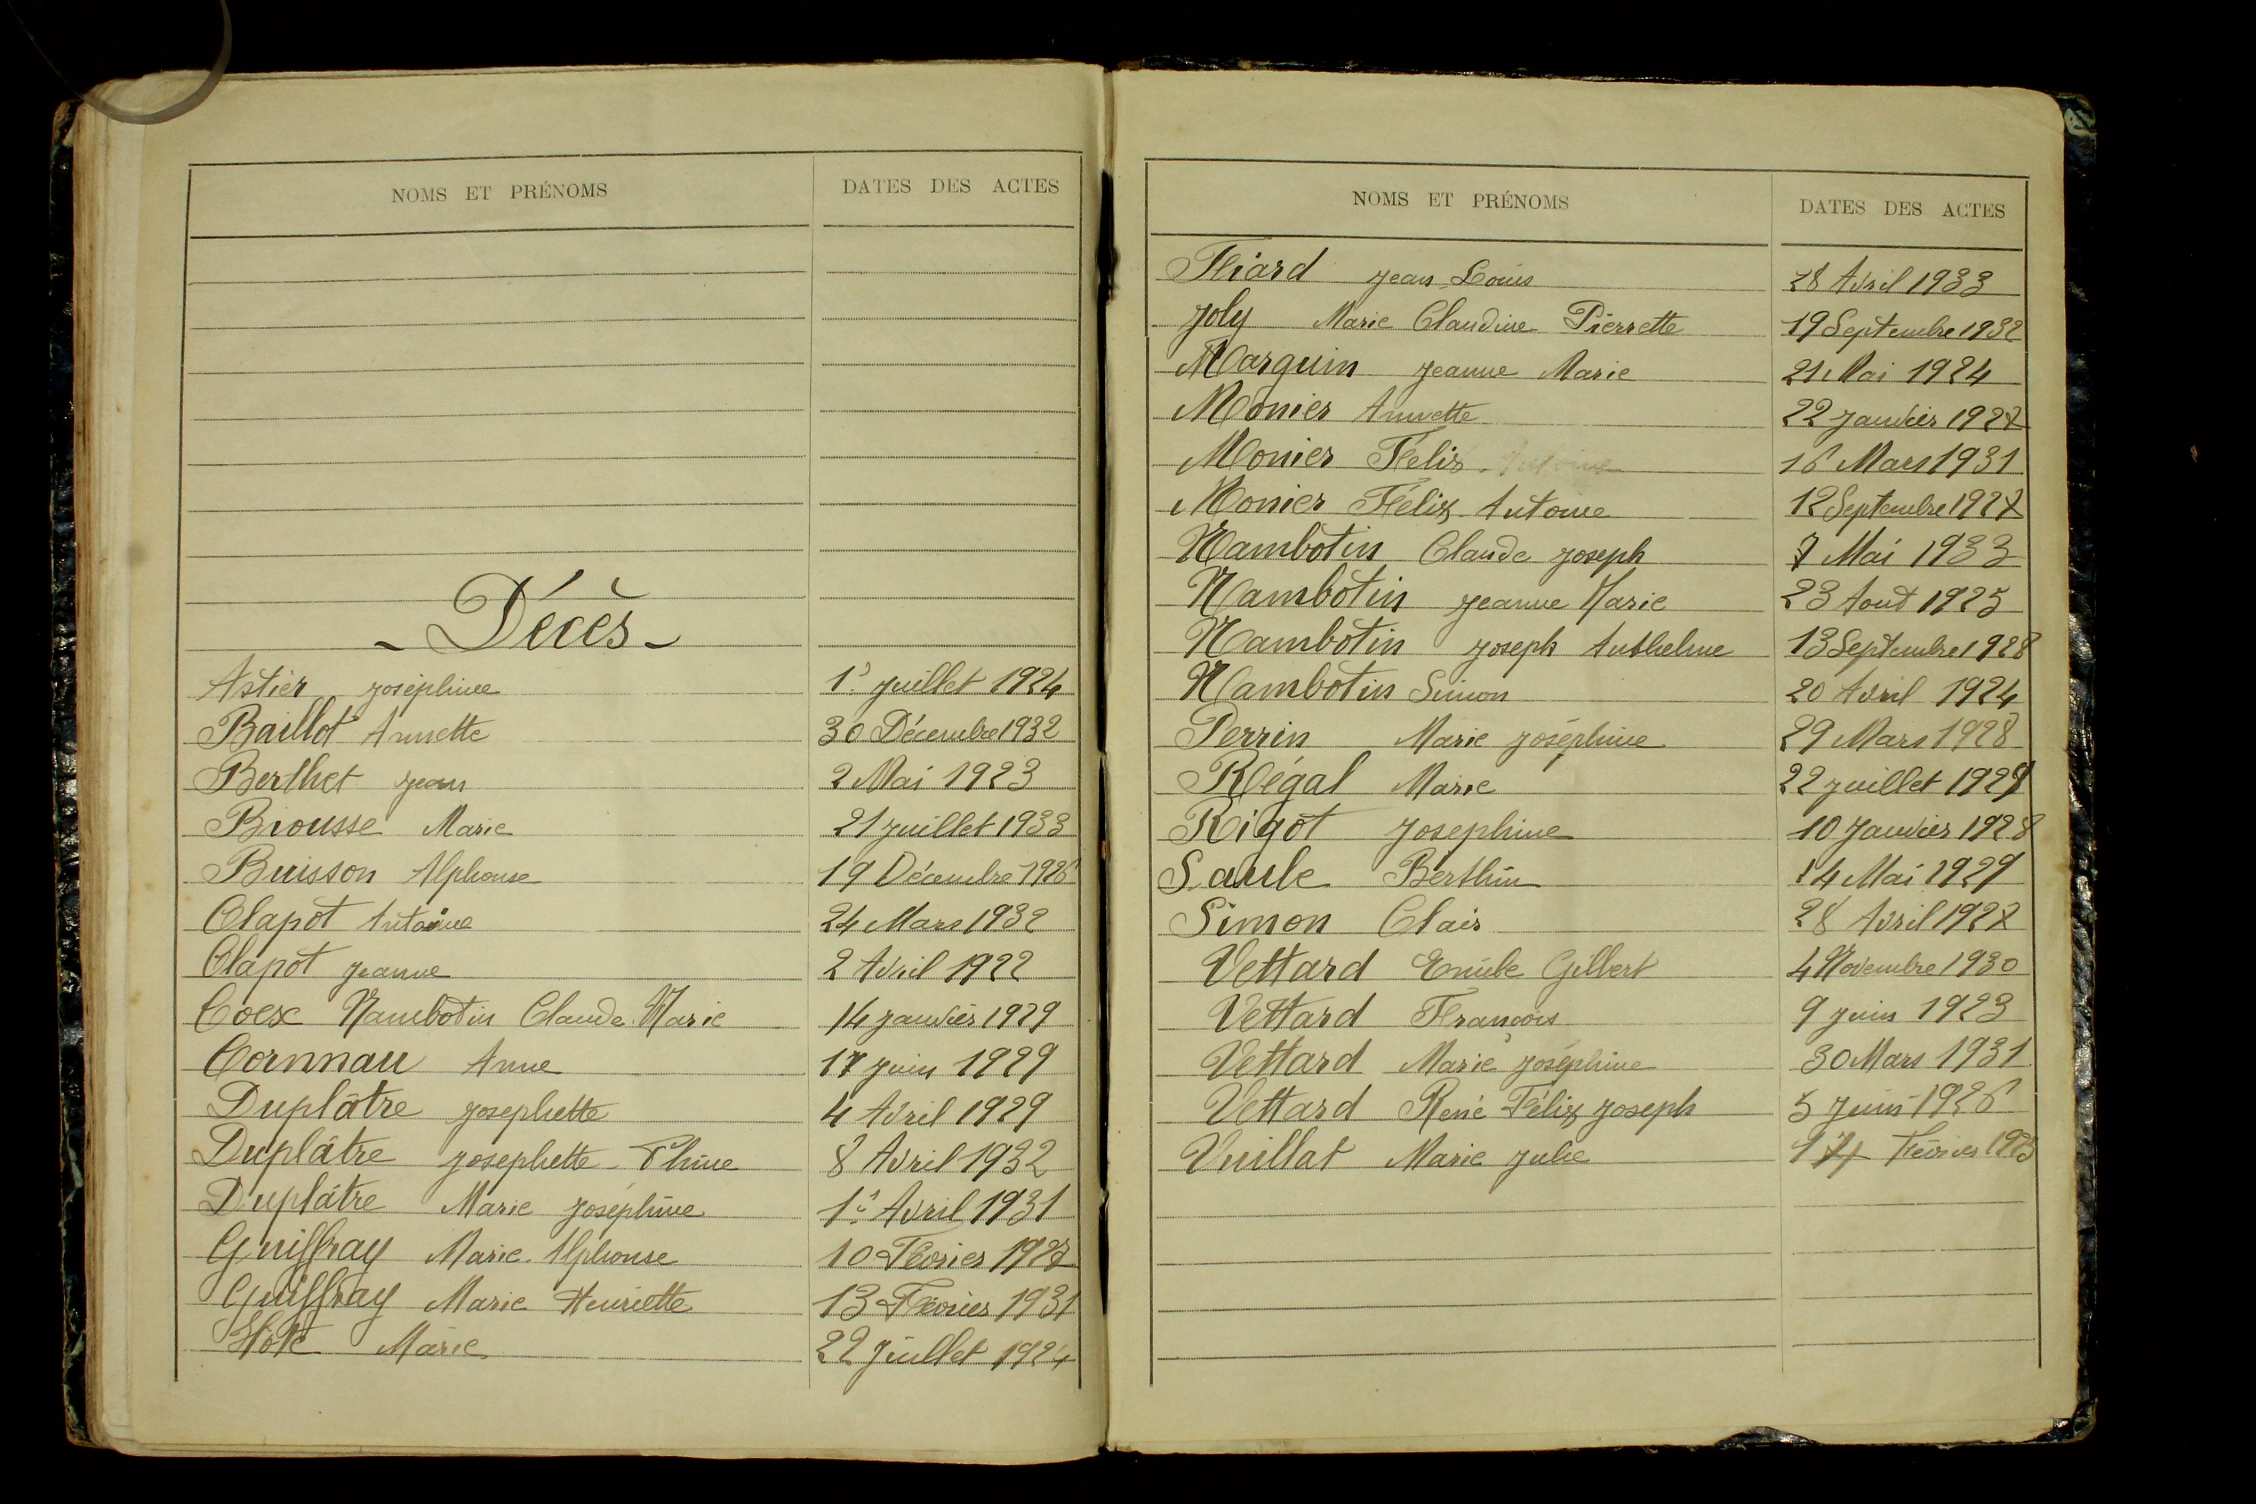 NOMS ET PRÉNOMS DATES DES ACTES
- Décès -
Astier Joséphine 1er Juillet 1924
Baillot Annette 30 Décembre 1932
Berthet Jean 2 Mai 1923
Brousse Marie 21 Juillet 1933
Buisson Alphonse 19 Décembre 1926
Clapot Antoine 24 Mars 1932
Clapot Jeanne 2 Avril 1922
Coex Nambotin Claude Marie 14 Janvier 1929
Cornnau Anne 17 Juin 1929
Duplâtre Josephette 4 Avril 1929
Duplâtre Josephette Phine 8 Avril 1932
Duplâtre Marie Joséphine 1er Avril 1931
Guiffray Marie Alphonse 10 Février 1927
Guiffray Marie Henriette 13 Février 1931
Hote Marie 22 Juillet 1924
NOMS ET PRÉNOMS DATES DES ACTES
Jean Louis 28 Avril 1933
Joly Marie Claudine Pierrette 19 Septembre 1932
Marguin Jeanne Marie 21 Mai 1924
Monier Annette 22 Janvier 1927
Monier Félix Antoine 16 Mars 1931
Monier Félix Antoine 12 Septembre 1927
Nambotin Claude Joseph 7 Mai 1933
Nambotin Jeanne Marie 23 Aout 1925
Nambotin Joseph Anthelme 13 Septembre 1928
Nambotin Simon 20 Avril 1924
Perrin Marie Joséphine 29 Mars 1928
Régal Marie 22 Juillet 1929
Rigot Josephine 10 Janvier 1928
Saule Berthin 14 Mai 1929
Simon Clair 28 Avril 1927
Vettard Emile Gilbert 4 Novembre 1930
Vettard François 9 Juin 1923
Vettard Marie Joséphine 30 Mars 1931
Vettard René Félix Joseph 5 Juin 1926
Vuillat Marie Julie Février 1925